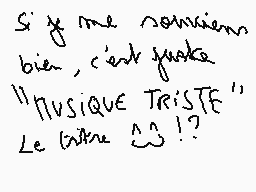 Si je me souviens
bien, c'est juste
"MUSIQUE TRISTE"
Le titre ^^ !?